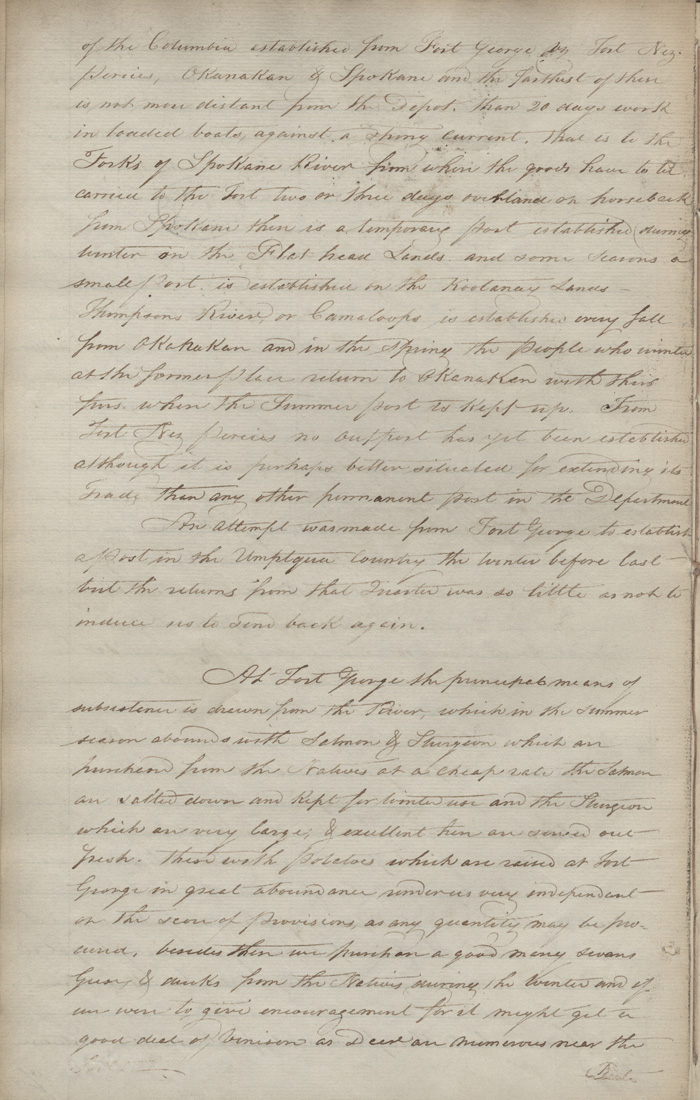 of the Columbia established from Fort George by Fort Nez
Perces, Okanakan & Spokane and the farthest of these
is not more distant from the Depot. than 20 days work
in loaded boats, against a strong current. that is to the
Forks of Spokane River from when the goods have to be
carried to the Fort two or three days overland on horseback
from Spokane there is a temporary post established during
winter on the Flat head Lands. and some seasons a
small Post. is established on the Kootanay Lands -
Thompsons River, or Camaloops is established every fall
from Okanakan and in the spring the people who winter
at the former place return to Okanakan with their
furs. when the Summer post is kept up. From
Fort Nez perces no outpost has yet been established
although it is perhaps better situated for extending its
Trade than any other permanent post in the Department
An attempt was made from Fort George to establish
a Post in the Umptqua Country the winter before last
but the returns from that Quarter was so little as not to
induce us to send back again.
At Fort George the principal means of
subsistence is drawn from the River, which in the summer
season abounds with Salmon & Sturgeon which are
purchased from the Natives at a cheap rate the Salmon
are salted down and kept for winter use and the Sturgeon
which are very large, & excellent here are served out
fresh. these with Potatoes which are raised at Fort
George in great abundance renders us very independent
on the score of provisions, as any quantity may be pro-
cured, besides these we purchase a good many swans
Geese & ducks from the Natives during the Winter and if
we were to give encouragement for it might get a
good deal of Venison as Deer are numerous near the
Fort.